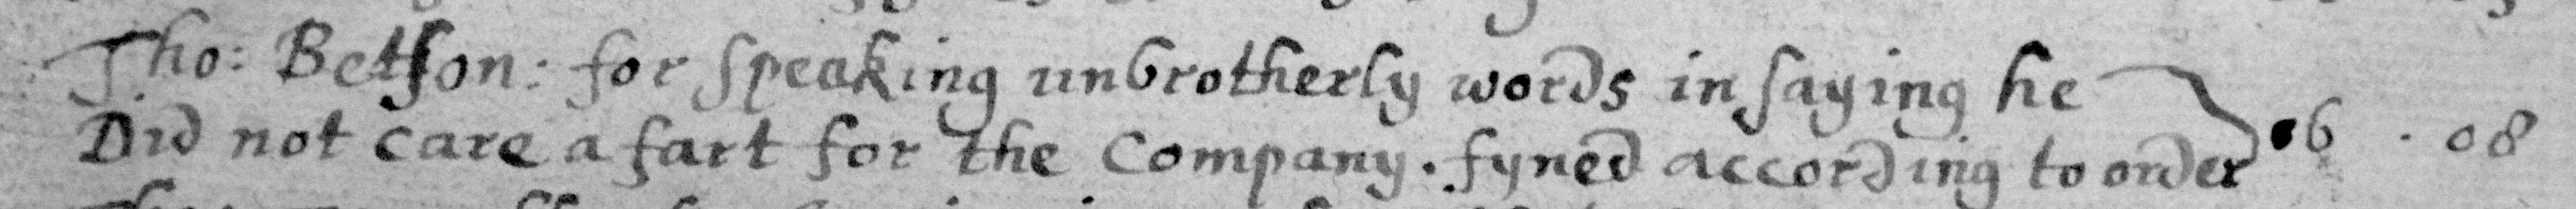 Tho: Betson: for speaking unbrotherly words in saying he
Did not care a fart for the Company. fyned according to order 06 . 08